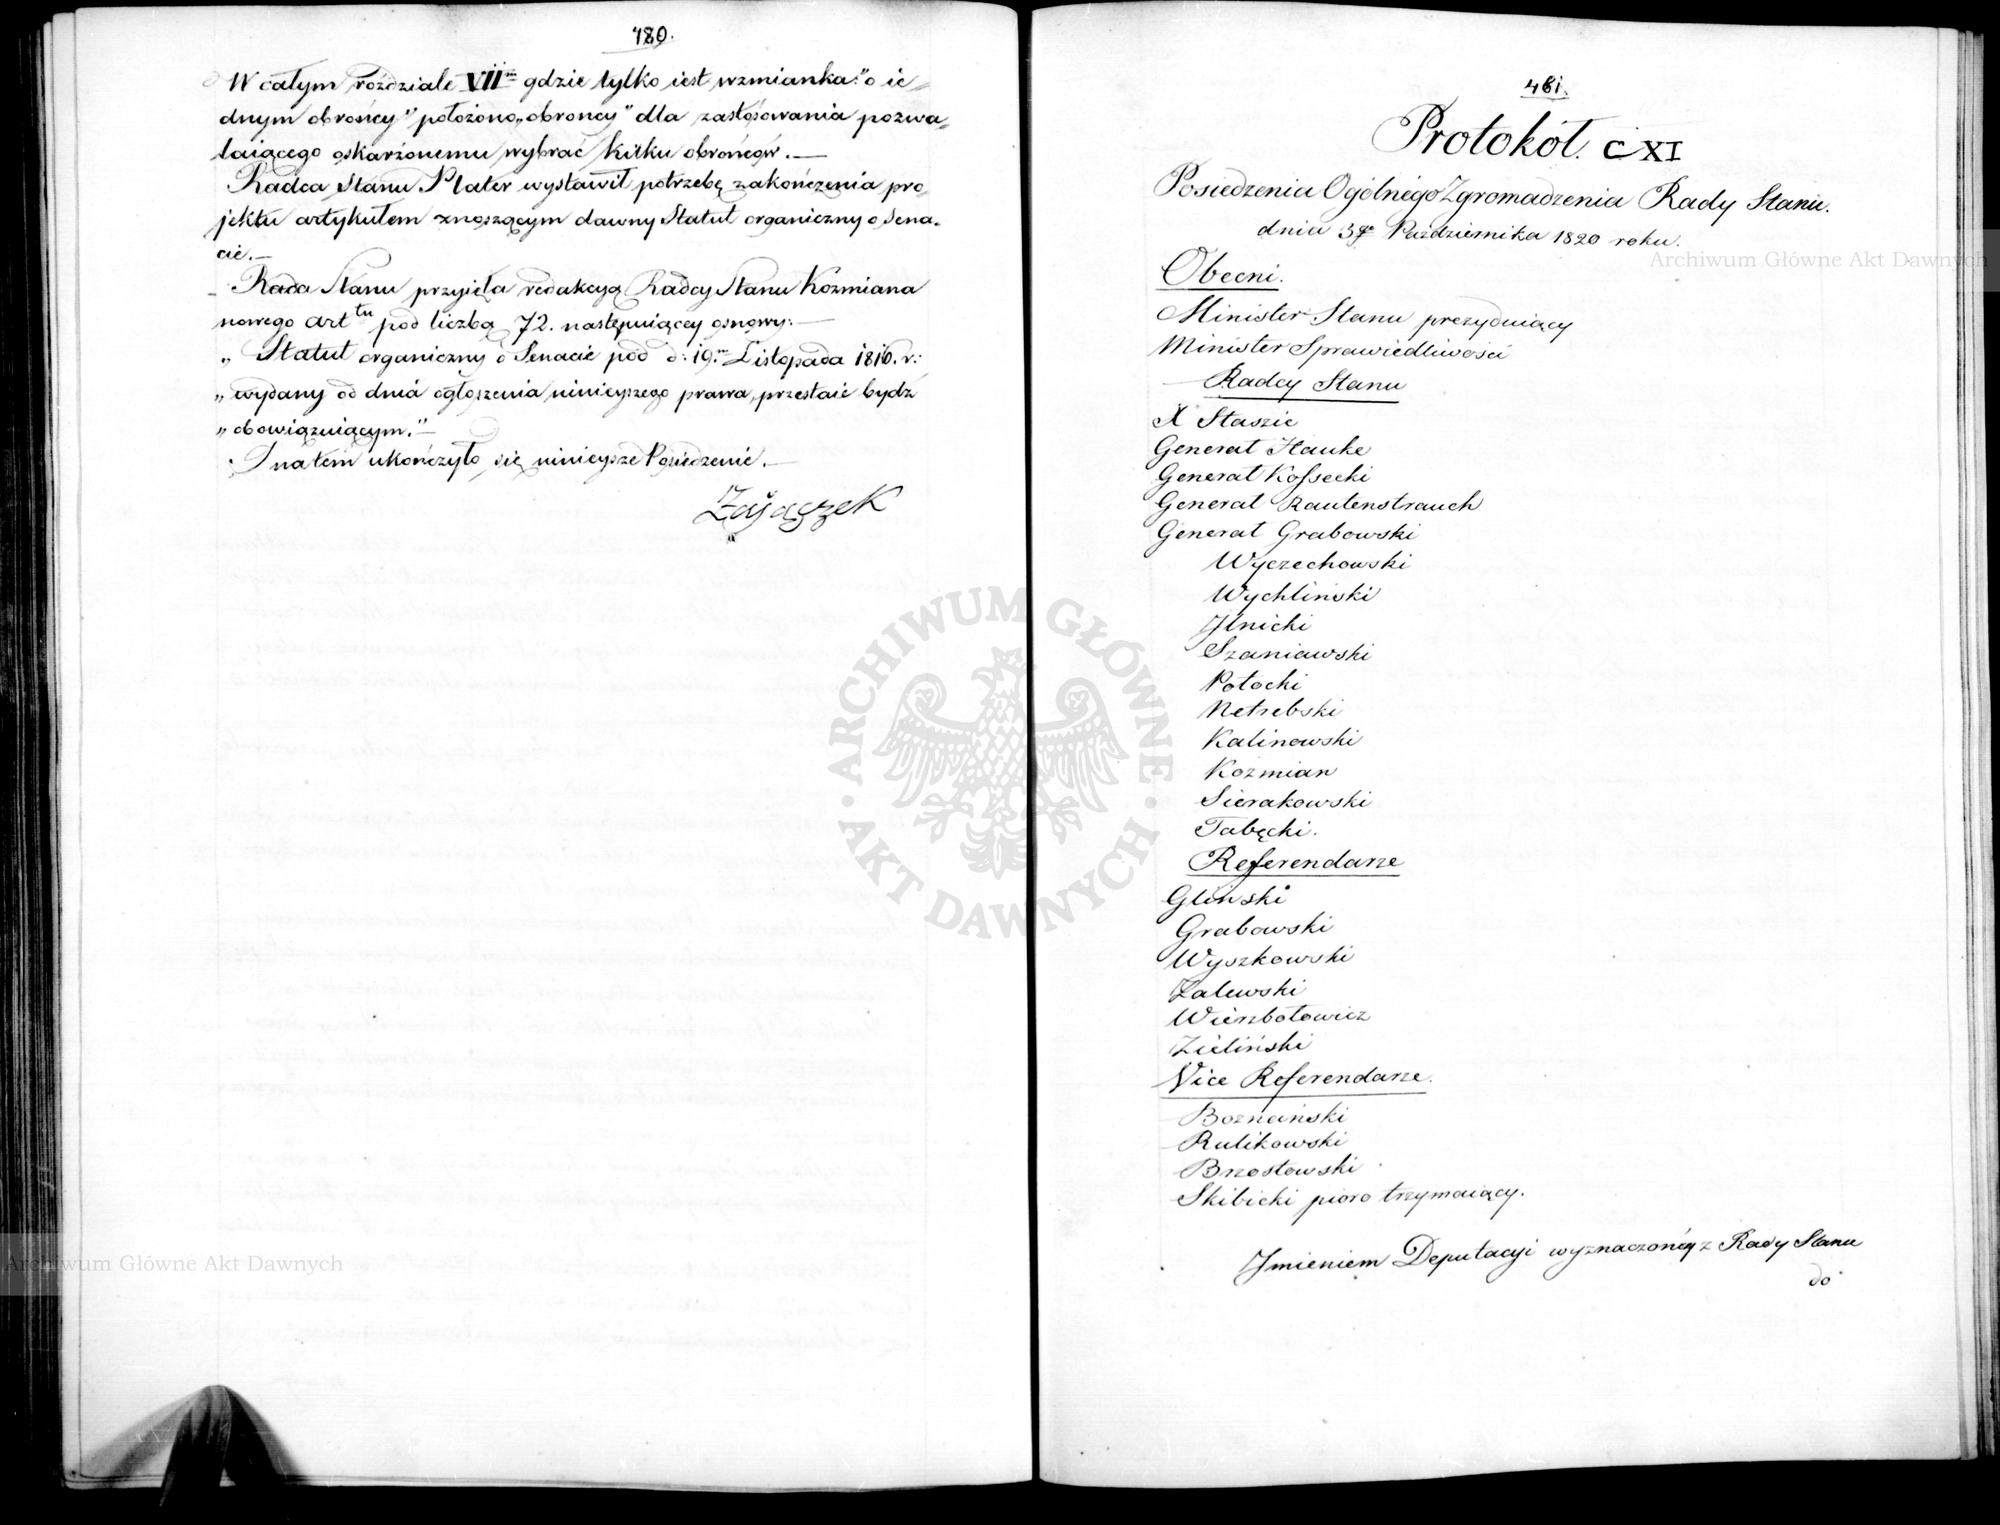 480.
W całym rózdziale VII^m gdzie tylko iest wzmianka: "o ie-
dnym obrońcy" położono "obrońcy" dla zastósowania pozwa-
laiącego oskarżonemu wybrać kilku obrońców. —
Radca Stanu Plater wystawił potrzebę zakończenia pro-
jektu artykułem znoszącym dawny Statut organiczny o Sena-
cie. —
Rada Stanu przyięła redakcyą Radcy Stanu Koźmiana
nowego art^łu pod liczbą 72. następuiącey osnowy: —
„ Statut organiczny o Senacie pod d: 19.^m Listopada 1816. r:
„ wydany od dnia ogłoszenia ninieyszego prawa, przestaie bydź
„ obowiązuiącym." —
I na tem ukończyło się ninieysze Posiedzenie. —
Zajączek
481.
Protokół. CXI
Posiedzenia Ogólnego Zgromadzenia Rady Stanu.
dnia 3go Października 1820 roku.
Obecni.
Minister Stanu prezyduiący
Minister Sprawiedliwości
Radcy Stanu
X Staszic
Generał Hauke
Generał Kossecki
Generał Rautenstrauch
Generał Grabowski
Wyczechowski
Wychliński
Ilnicki
Szaniawski
Potocki
Netrebski
Kalinowski
Kozmian
Sierakowski
Tabęcki.
Referendarze
Gliński
Grabowski
Wyszkowski
Zalewski
Wierzbołowicz
Zieliński
Vice Referendarze.
Boznański
Rulikowski
Brzostowski
Skibicki pioro trzymaiący.
Imieniem Deputacyi wyznaczoney z Rady Stanu
do
Archiwum Główne Akt Dawnych
Archiwum Główne Akt Dawnych
ARCHIWUM GŁÓWNE
AKT DAWNYCH